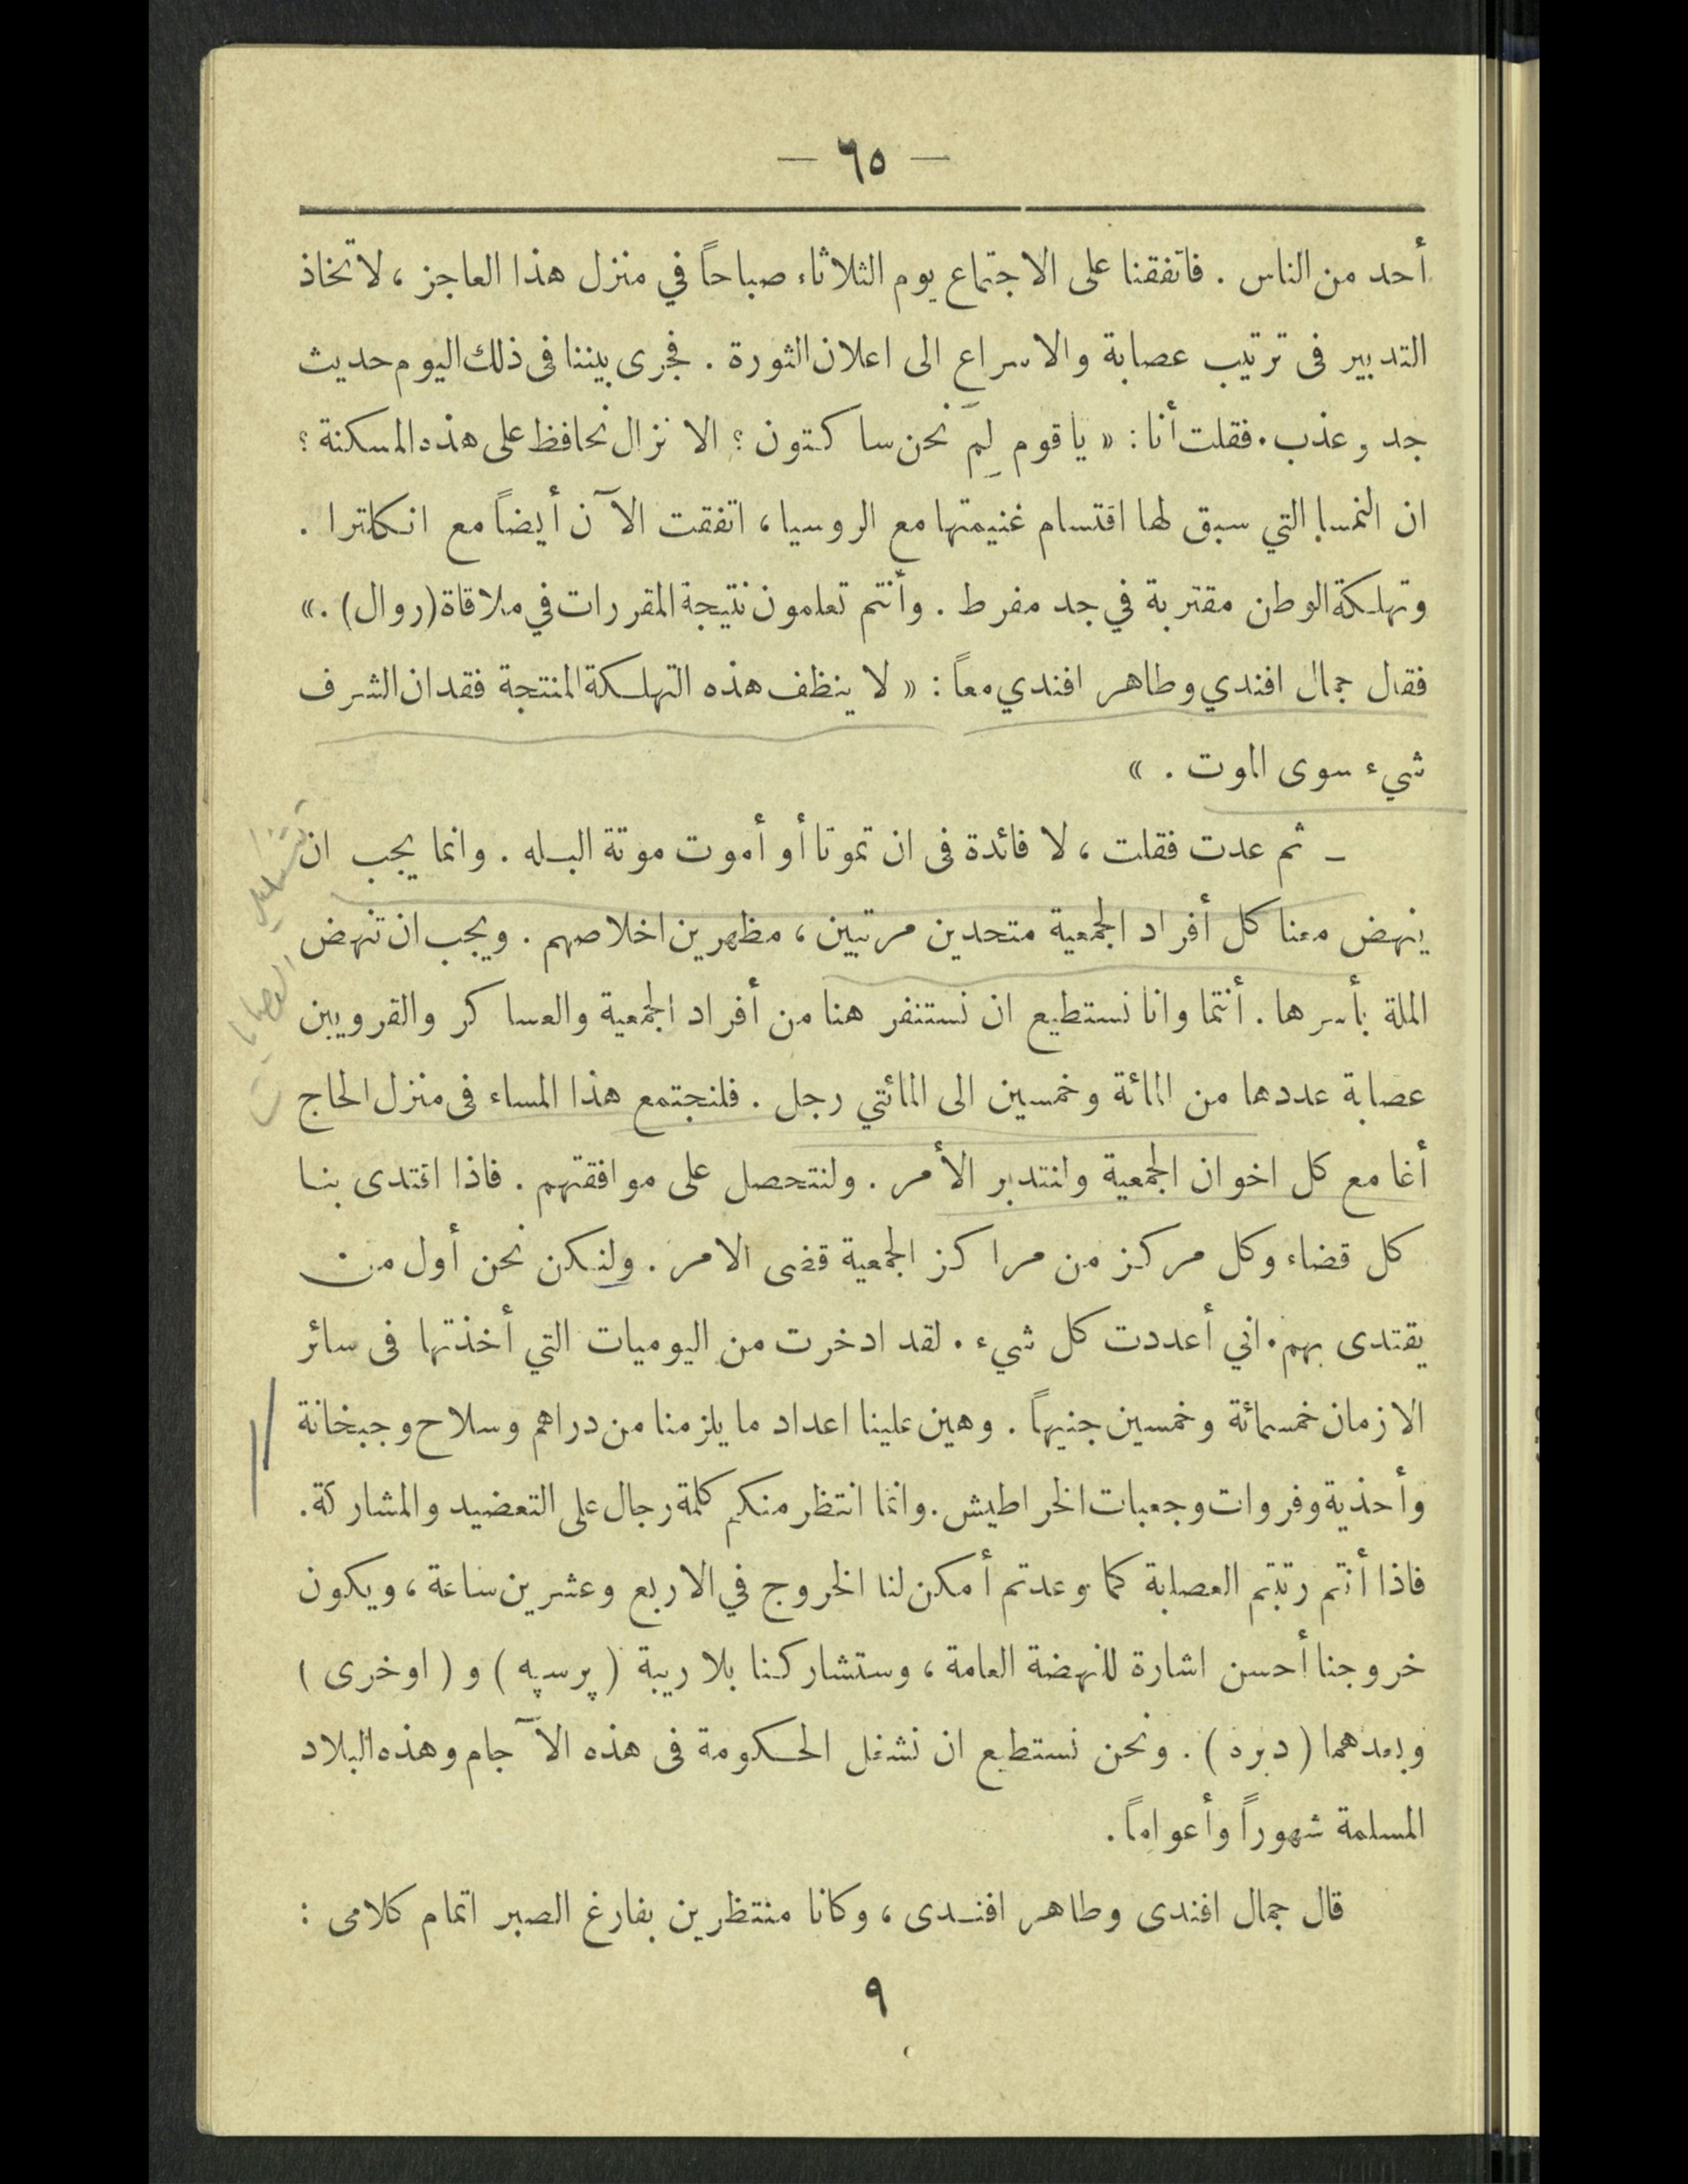 — ٦٥ —
أحد من الناس . فاتفقنا على الاجتماع يوم الثلاثاء صباحاً في منزل هذا العاجز ، لاتخاذ
التدبير فى ترتيب عصابة والاسراع الى اعلان الثورة . فجرى بيننا فى ذلك اليوم حديث
جد وعذب . فقلت أنا : « يا قوم لِمَ نحن ساكتون ؟ الا نزال نحافظ على هذه المسكنة ؟
ان النمسا التي سبق لها اقتسام غنيمتها مع الروسيا ، اتفقت الآن أيضاً مع انكلترا .
وتهلكة الوطن مقتربة في جد مفرط . وأنتم تعلمون نتيجة المقررات في ملاقاة (روال) . »
فقال جمال افندي وطاهر افندي معاً : « لا ينظف هذه التهلكة المنتجة فقدان الشرف
شيء سوى الموت . »
– ثم عدت فقلت ، لا فائدة فى ان تموتا أو أموت موتة البله . وانما يجب ان
ينهض معنا كل أفراد الجمعية متحدين مرتبين ، مظهرين اخلاصهم . ويجب ان تنهض
الملة بأسرها . أنتما وانا نستطيع ان نستنفر هنا من أفراد الجمعية والعساكر والقرويين
عصابة عددها من المائة وخمسين الى المائتي رجل . فلنجتمع هذا المساء فى منزل الحاج
أغا مع كل اخوان الجمعية ولنتدبر الأمر . ولنتحصل على موافقتهم . فاذا اقتدى بنا
كل قضاء وكل مركز من مراكز الجمعية قضى الامر . ولنكن نحن أول من
يقتدى بهم . اني أعددت كل شيء . لقد ادخرت من اليوميات التي أخذتها فى سائر
الازمان خمسمائة وخمسين جنيهاً . وهين علينا اعداد ما يلزمنا من دراهم وسلاح وجبخانة
وأحذية وفروات وجعبات الخراطيش . وانما انتظر منكم كلمة رجال على التعضيد والمشاركة .
فاذا أنتم رتبتم العصابة كما وعدتم أمكن لنا الخروج في الاربع وعشرين ساعة ، ويكون
خروجنا أحسن اشارة للنهضة العامة ، وستشاركنا بلا ريبة ( پرسپه ) و ( اوخرى )
وبعدهما ( دبره ) . ونحن نستطيع ان نشغل الحكومة فى هذه الآجام وهذه البلاد
المسلمة شهوراً وأعواماً .
قال جمال افندى وطاهر افندى ، وكانا منتظرين بفارغ الصبر اتمام كلامى :
٩
العصابات